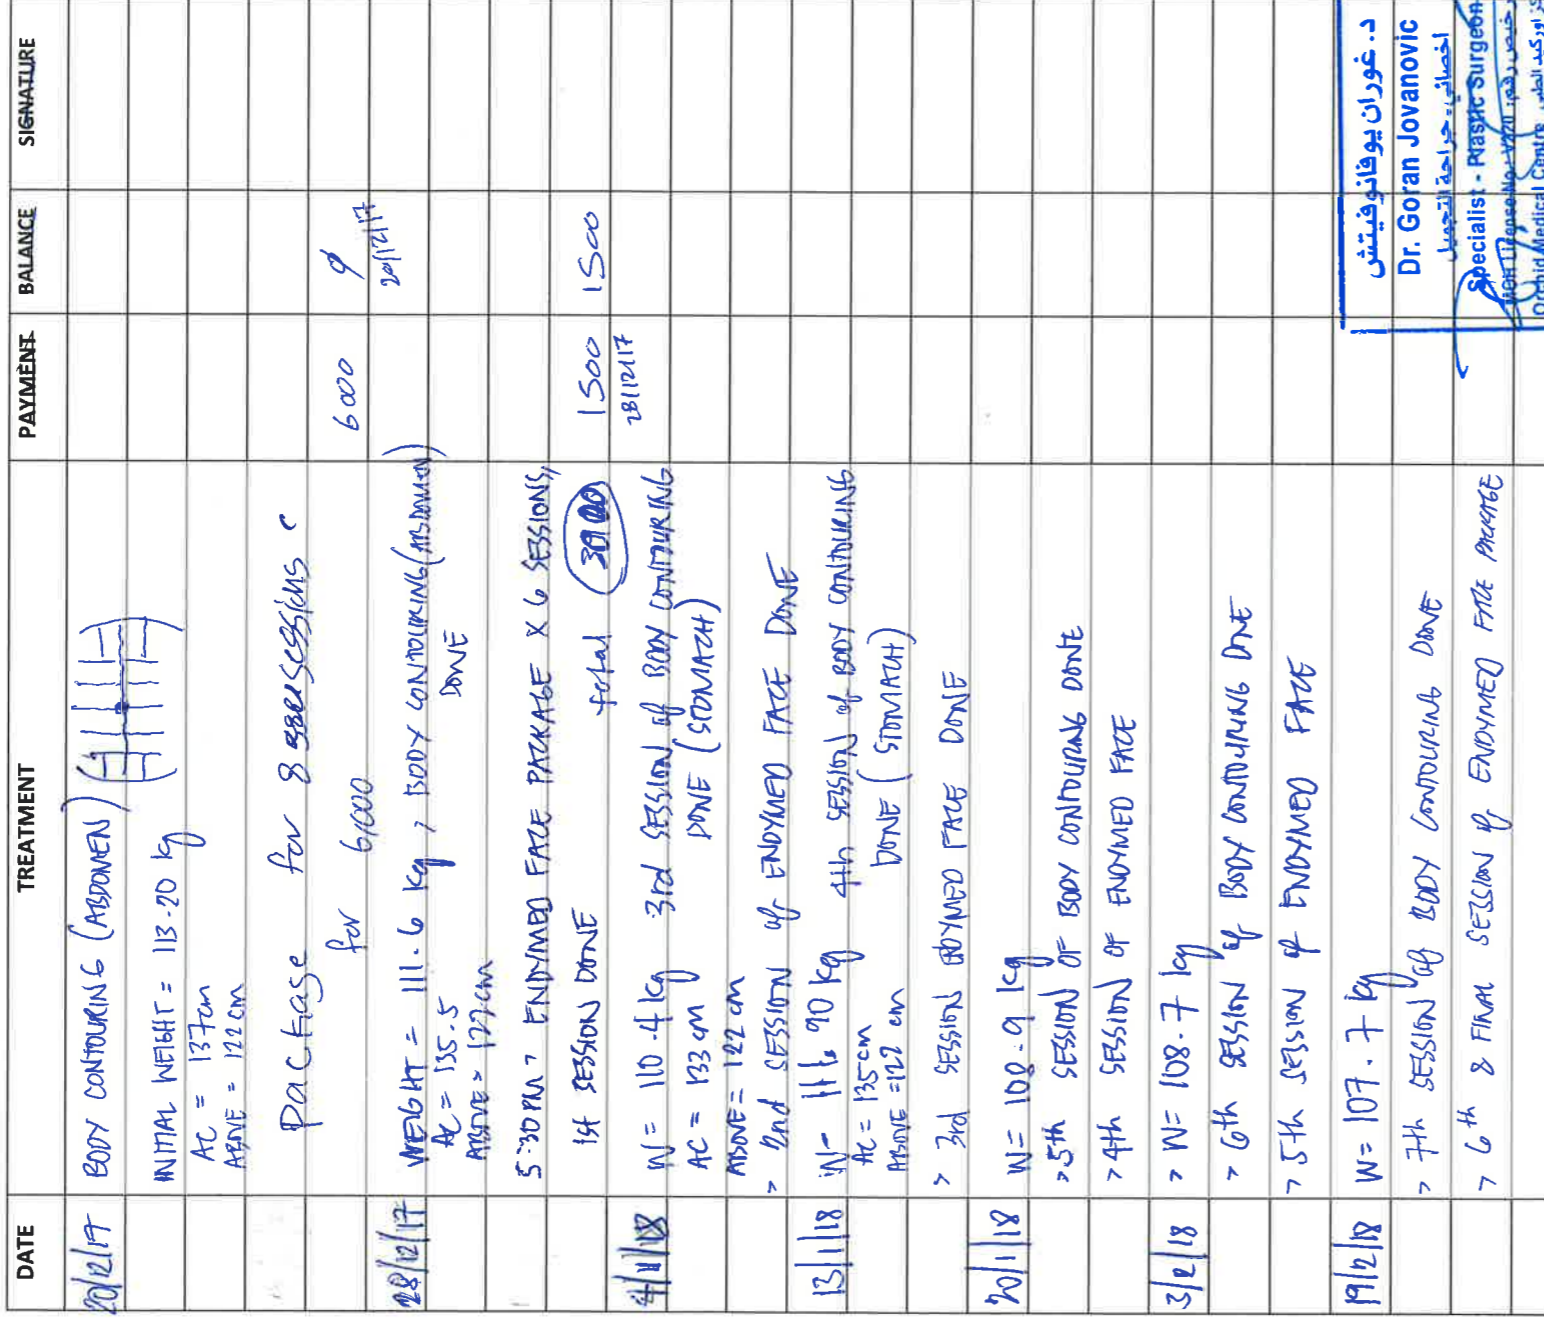 DATE TREATMENT PAYMENT BALANCE SIGNATURE
20/12/17 BODY CONTOURING (ABDOMEN)
INITIAL WEIGHT = 113.20 kg
AC = 137cm
ABOVE = 122 cm
Package for 8 sessions
for 6,000 6000 0
20/12/17
28/12/17 WEIGHT = 111.6 kg, BODY CONTOURING (ABDOMEN)
AC = 135.5 DONE
ABOVE = 122cm
5:30 PM > ENDYMED FACE PACKAGE X 6 SESSIONS,
1st SESSION DONE total 3000 1500 1500
28/12/17
4/1/18 W= 110.4 kg 3rd SESSION of BODY CONTOURING
AC = 133 cm DONE (STOMACH)
ABOVE= 122 cm
> 2nd SESSION of ENDYMED FACE DONE
13/1/18 W= 111.90 kg 4th SESSION of BODY CONTOURING
AC = 135cm DONE (STOMACH)
ABOVE =122 cm
> 3rd SESSION ENDYMED FACE DONE
20/1/18 W= 108.9 kg
>5th SESSION OF BODY CONTOURING DONE
>4th SESSION OF ENDYMED FACE
3/2/18 > W= 108.7 kg
> 6th SESSION of BODY CONTOURING DONE
> 5th SESSION of ENDYMED FACE
19/2/18 W= 107.7 kg
> 7th SESSION of BODY CONTOURING DONE
> 6th & FINAL SESSION of ENDYMED FACE PACKAGE
د. غوران يوفانوفيتش
Dr. Goran Jovanovic
اخصائي - جراحة التجميل
Specialist - Plastic Surgeon
MOH License No: V220 ترخيص رقم
Orchid Medical Centre مركز اوركيد الطبي